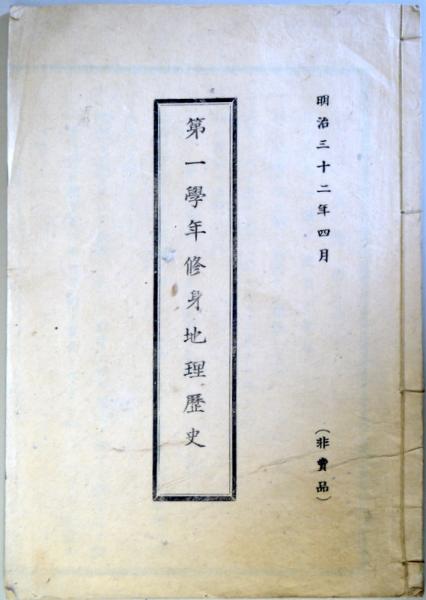 明治三十二年四月
(非賣品)
第一學年修身地理歷史